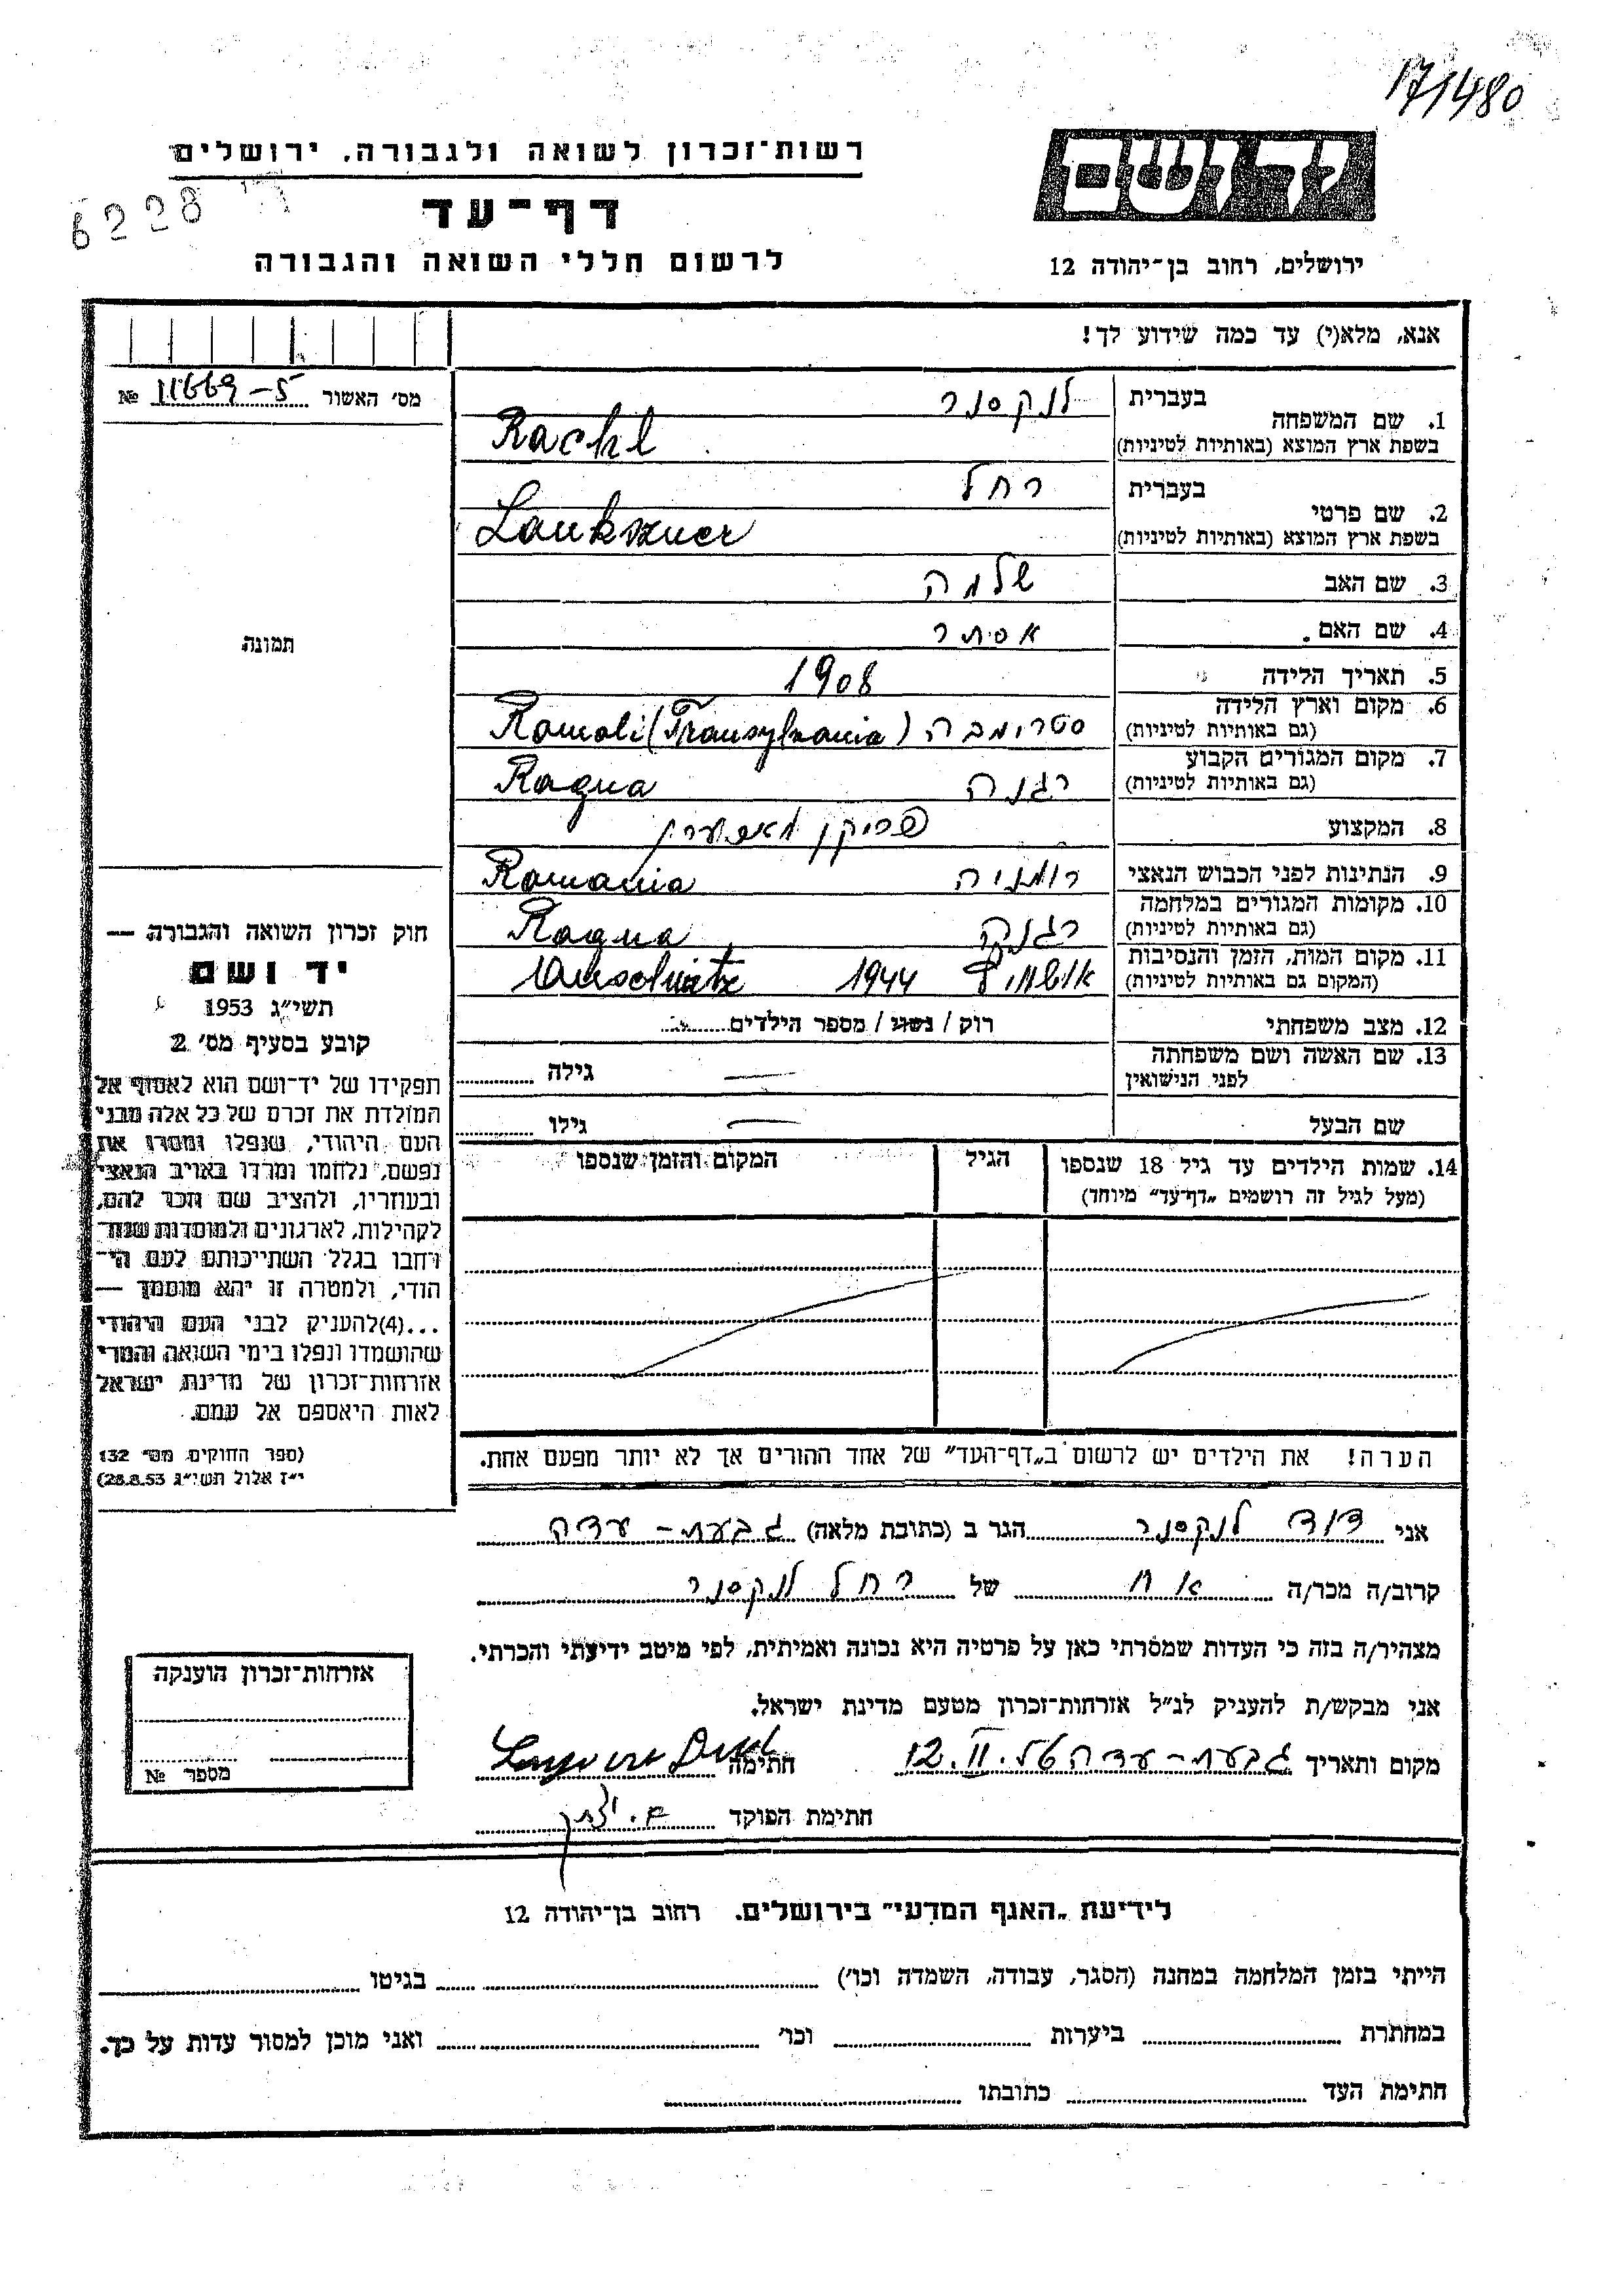 171480
יד ושם
רשות־זכרון לשואה ולגבורה, ירושלים
6228
דף־עד
לרשום חללי השואה והגבורה
ירושלים, רחוב בן־יהודה 12
אנא, מלא(י) עד כמה שידוע לך!
מס' האשור 11669-5 №
1. שם המשפחה
בעברית לנקסנר
בשפת ארץ המוצא (באותיות לטיניות) Rachl
2. שם פרטי
בעברית רחל
בשפת ארץ המוצא (באותיות לטיניות) Lankszner
3. שם האב שלמה
4. שם האם אסתר
5. תאריך הלידה 1908
6. מקום וארץ הלידה
(גם באותיות לטיניות) סטרימבה Romoli (Transylvania)
7. מקום המגורים הקבוע
(גם באותיות לטיניות) רגנה Ragna
8. המקצוע
9. הנתינות לפני הכבוש הנאצי רומניה Romania
10. מקומות המגורים במלחמה
(גם באותיות לטיניות) Ragna
11. מקום המות, הזמן והנסיבות
(המקום גם באותיות לטיניות) 1944
12. מצב משפחתי רוק / נשוי / מספר הילדים
13. שם האשה ושם משפחתה
לפני הנישואין — גילה
שם הבעל — גילו
14. שמות הילדים עד גיל 18 שנספו
(מעל לגיל זה רושמים „דף־עד" מיוחד)
הגיל
המקום והזמן שנספו
הערה! את הילדים יש לרשום ב„דף־העד" של אחד ההורים אך לא יותר מפעם אחת.
תמונה
חוק זכרון השואה והגבורה —
יד ושם
תשי״ג 1953
קובע בסעיף מס' 2
תפקידו של יד־ושם הוא לאסוף אל
המולדת את זכרם של כל אלה מבני
העם היהודי, שנפלו ומסרו את
נפשם, נלחמו ומרדו באויב הנאצי
ובעוזריו, ולהציב שם וזכר להם,
לקהילות, לארגונים ולמוסדות שנח־
רחבו בגלל השתייכותם לעם הי־
הודי, ולמטרה זו יהא מוסמך —
...(4)להעניק לבני העם היהודי
שהושמדו ונפלו בימי השואה והמרי
אזרחות־זכרון של מדינת ישראל
לאות היאספם אל עמם.
(ספר החוקים מס' 132
י״ז אלול תשי״ג 28.8.53)
אני דוד לנקסנר הגר ב (כתובת מלאה) גבעת-עדה
קרוב/ה מכר/ה אח של רחל לנקסנר
מצהיר/ה בזה כי העדות שמסרתי כאן על פרטיה היא נכונה ואמיתית, לפי מיטב ידיעתי והכרתי.
אני מבקש/ת להעניק לנ״ל אזרחות־זכרון מטעם מדינת ישראל.
מקום ותאריך גבעת-עדה 12.II. חתימה
חתימת הפוקד
אזרחות־זכרון הוענקה
מספר №
לידיעת „האגף המדעי" בירושלים. רחוב בן־יהודה 12
הייתי בזמן המלחמה במחנה (הסגר, עבודה, השמדה וכו') בגיטו
במחתרת ביערות וכו' ואני מוכן למסור עדות על כך.
חתימת העד כתובתו